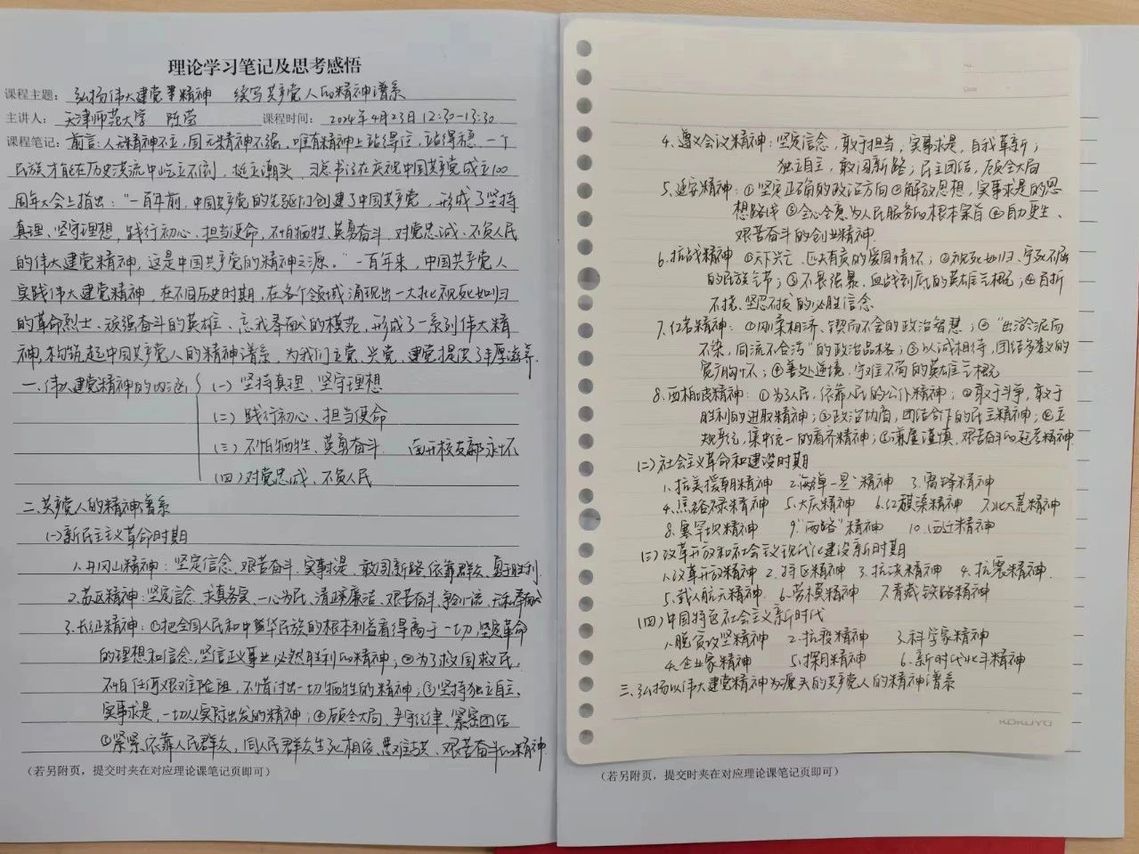 理论学习笔记及思考感悟
课程主题： 弘扬伟大建党精神 续写共产党人的精神谱系
主讲人： 天津师范大学 陈莹 课程时间： 2024年4月23日 12:30-13:30
课程笔记： 前言：人无精神不立，国无精神不强，唯有精神上站得住，站得稳，一个
民族才能在历史洪流中屹立不倒，挺立潮头，习总书记在庆祝中国共产党成立100
周年大会上指出："一百年前，中国共产党的先驱们创建了中国共产党，形成了坚持
真理、坚守理想，践行初心、担当使命，不怕牺牲、英勇奋斗，对党忠诚、不负人民
的伟大建党精神，这是中国共产党的精神之源。"一百年来，中国共产党人
实践伟大建党精神，在不同历史时期，在各个领域涌现出一大批视死如归
的革命烈士、顽强奋斗的英雄、忘我奉献的模范，形成了一系列伟大精
神，构筑起中国共产党人的精神谱系，为我们立党、兴党、建党提供了丰厚滋养.
一、伟大建党精神的内涵 (一) 坚持真理、坚守理想
(二) 践行初心、担当使命
(三) 不怕牺牲、英勇奋斗
(四) 对党忠诚、不负人民
二、共产党人的精神谱系
(一)新民主主义革命时期
1.井冈山精神：坚定信念、艰苦奋斗，实事求是、敢闯新路，依靠群众、勇于胜利.
2.苏区精神：坚定信念、求真务实、一心为民、清正廉洁、艰苦奋斗、争创一流、无私奉献
3.长征精神：①把全国人民和中华民族的根本利益看得高于一切，坚定革命
的理想和信念，坚信正义事业必然胜利的精神；②为了救国救民，
不怕任何艰难险阻，不惜付出一切牺牲的精神；③坚持独立自主、
实事求是，一切从实际出发的精神；④顾全大局、严守纪律、紧密团结
⑤紧紧依靠人民群众，同人民群众生死相依、患难与共、艰苦奋斗的精神
（若另附页，提交时夹在对应理论课笔记页即可）
4.遵义会议精神：坚定信念，敢于担当，实事求是，自我革新；
独立自主，敢闯新路；民主团结，顾全大局
5.延安精神：①坚定正确的政治方向②解放思想，实事求是的思
想路线③全心全意为人民服务的根本宗旨④自力更生、
艰苦奋斗的创业精神
6.抗战精神 ①天下兴亡、匹夫有责的爱国情怀；②视死如归、宁死不屈
的民族气节；③不畏强暴、血战到底的英雄气概；④百折
不挠、坚忍不拔的必胜信念
7.红岩精神：①刚柔相济、锲而不舍的政治智慧；②"出淤泥而
不染，同流不合污"的政治品格；③以诚相待，团结多数人的
宽广胸怀；④善处逆境，宁难不苟的英雄气概
8.西柏坡精神：①为人民、依靠人民的公仆精神；②敢于斗争，敢于
胜利的进取精神；③政治协商，团结合作的民主精神；④立
规矩，集中统一的看齐精神；⑤谦虚谨慎，艰苦奋斗的赶考精神
(二)社会主义革命和建设时期
1.抗美援朝精神 2."两弹一星"精神 3.雷锋精神
4.焦裕禄精神 5.大庆精神 6.红旗渠精神 7.北大荒精神
8.塞罕坝精神 9."两路"精神 10.西迁精神
(三)改革开放和社会主义现代化建设新时期
1.改革开放精神 2.特区精神 3.抗洪精神 4.抗震精神.
5.载人航天精神 6.劳模精神 7.青藏铁路精神
(四)中国特色社会主义新时代
1.脱贫攻坚精神 2.抗疫精神 3.科学家精神
4.企业家精神 5.探月精神 6.新时代北斗精神
三、弘扬以伟大建党精神为源头的共产党人的精神谱系
KOKUYO
（若另附页，提交时夹在对应理论课笔记页即可）